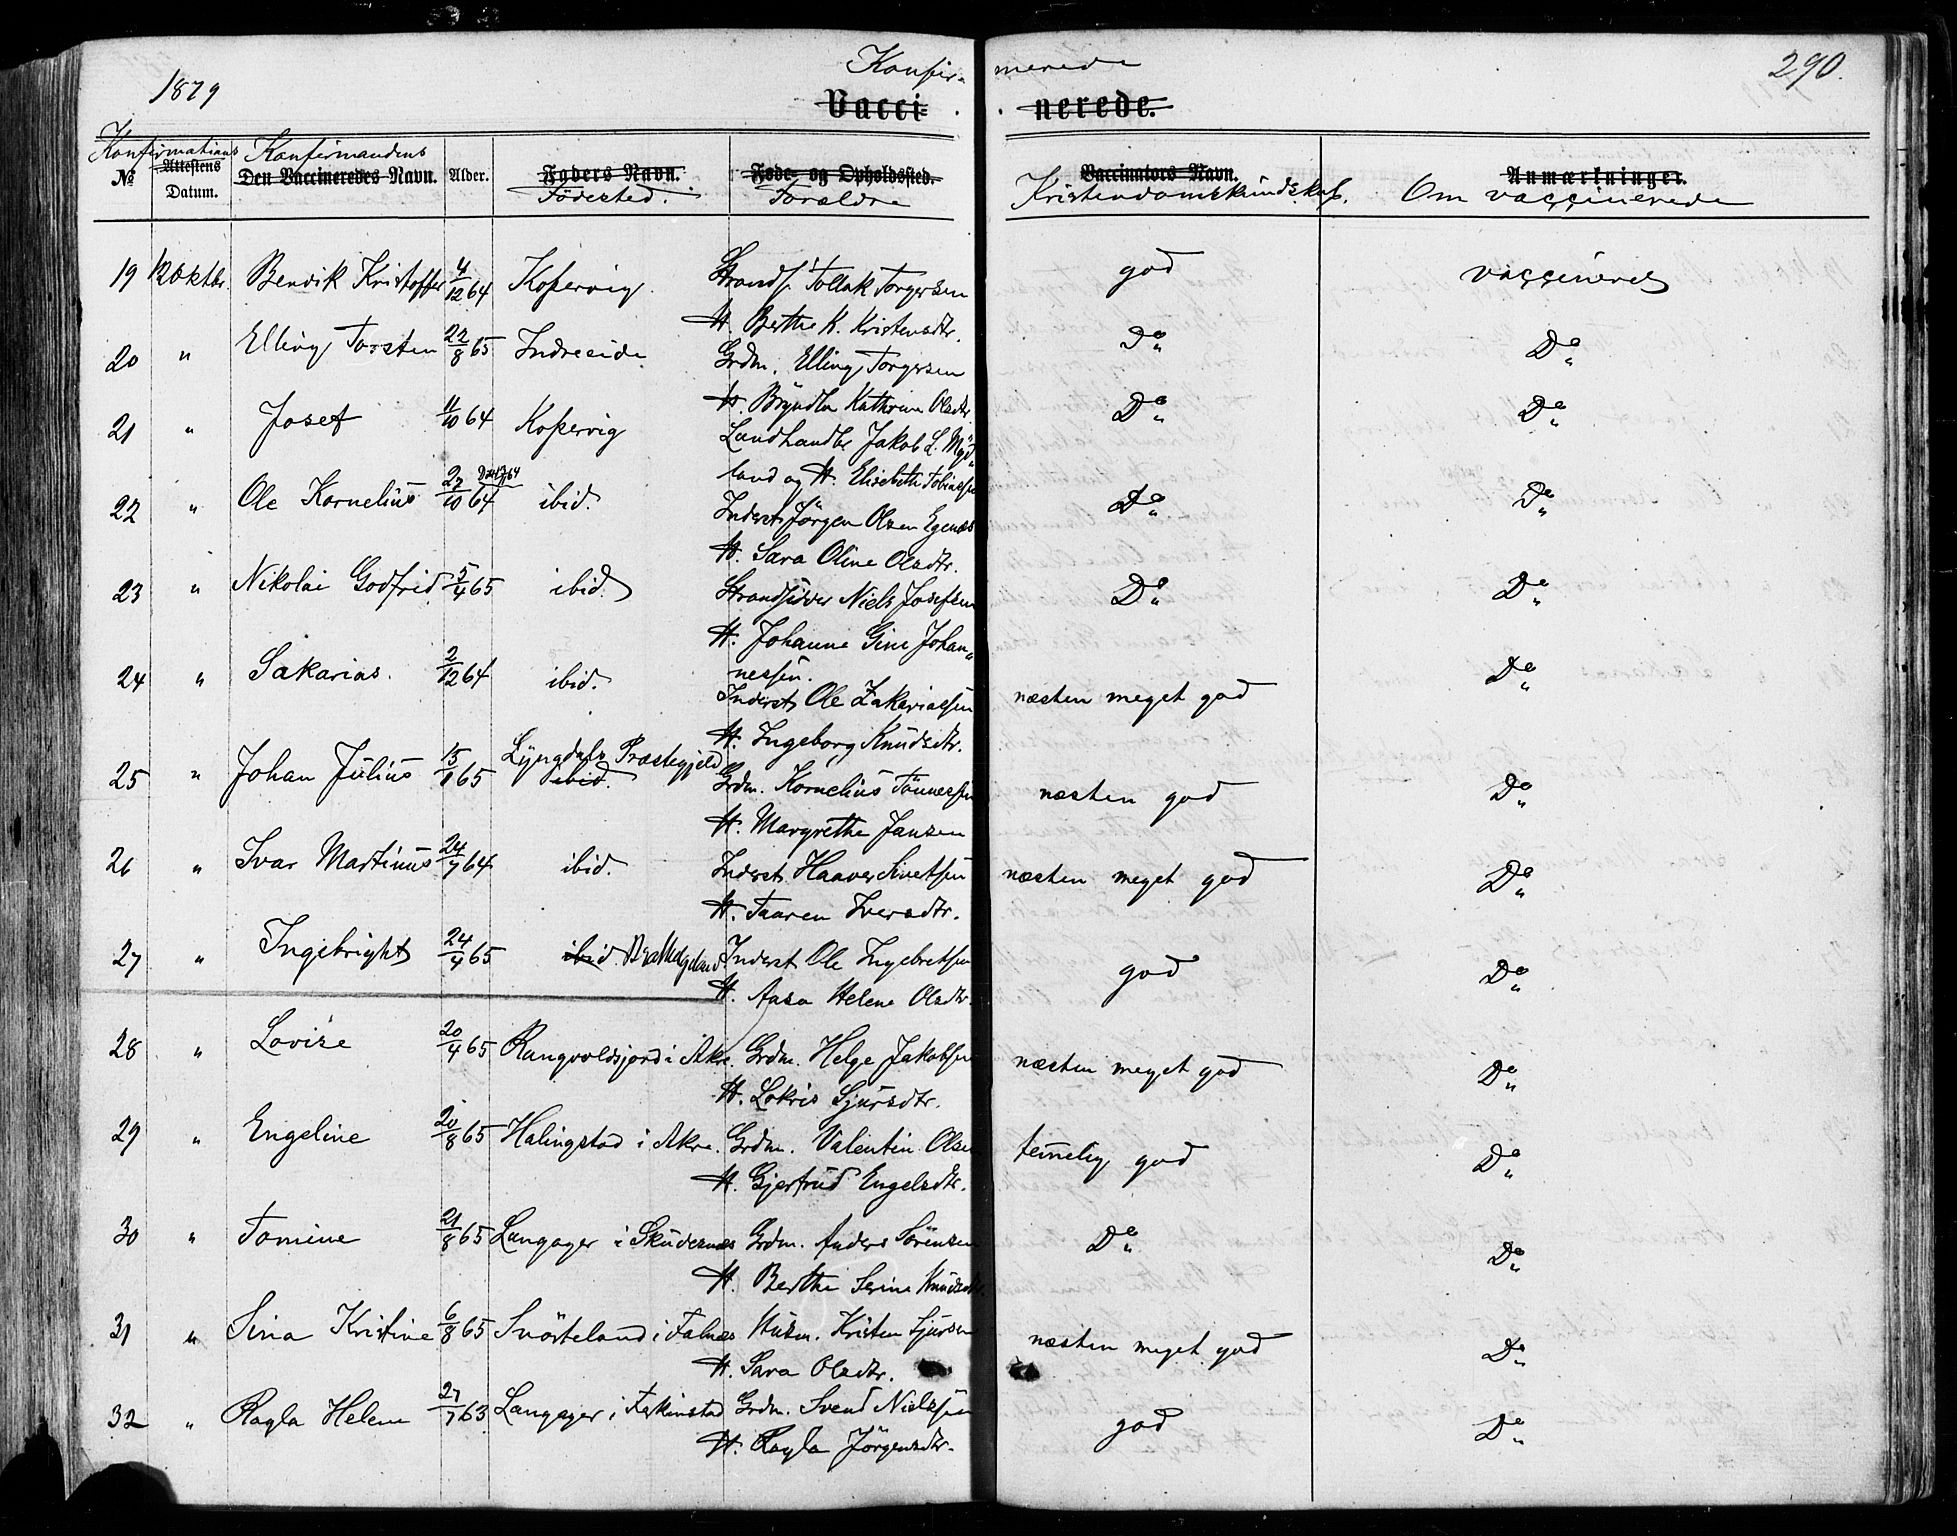 1879
Konfir-merede
290.
Vacci-nerede.
Konfirmations
No
Attestens
Datum.
Konfirmandens
Den Vaccineredes Navn.
Alder.
Faders Navn.
Födested.
Føde- og Opholdssted.
Forældre
Vaccinators Navn.
Kristendomskundskab.
Anmærkninger.
Om vaccinerede
19 12 Oktbr. Bendik Kristoffer 4/12 64 Kopervig. Strands. Tollak Torgersen god vaccineret
H. Berthe K. Kristensdtr.
20 " Elling Torsten 22/8 65 Indreeide Grdm. Elling Torgersen Do Do
H. Kathrine Olsdtr
21 " Josef 4/10 64 Kopervig Landhandler Jakob L. Myd- Do Do
land og H. Elisebeth Tobiassen
22 " Ole Kornelius 27/10 64 ibid. Inderst Jörgen Olsen Egenæs Do Do
H. Sara Oline Olsdtr.
23 " Nikolai Godfrid 5/4 65 ibid. Strandsidder Niels Josefsen Do Do
H. Johanne Gine Johan-
nessen.
24 " Sakarias. 2/12 64 ibid. Inderst Ole Zakariassen næsten meget god Do
H. Ingeborg Knudsdtr.
25 " Johan Julius 15/1 65 Lyngdals Præstegjeld ibid. Grdm. Kornelius Tönnessen næsten god Do
H. Margrethe Jansen
26 " Ivar Martinus 24/7 64 ibid. Inderst Haaver Sivertsen næsten meget god Do
H. Taaren Iversdtr.
27 " Ingebright 24/4 65 ibid. Inderst Ole Ingebretsen god Do
H. Aasa Helene Olsdtr.
28 " Lovise 20/4 65 Rangvoldsjord i Akre. Grdm. Helge Jakobsen næsten meget god Do
H. Lokris Sjursdtr.
29 " Engeline 20/8 65 Halingstad i Akre. Grdm. Valentin Olsen temelig god Do
H. Gjertrud Engelsdtr.
30 " Tomine 21/8 65 Langager i Skudesnæs Grdm. Anders Sörensen Do Do
H. Berthe Serine Knudsdtr.
31 " Sina Kristine 6/8 65 Snörteland i Falnes Husm. Kristen Sjursen næsten meget god Do
H. Sara Olsdtr.
32 " Ragla Helene 27/7 63 Langager i Ferkinstad Grdm. Svend Nielsen god Do
H. Ragla Jörgensdtr.